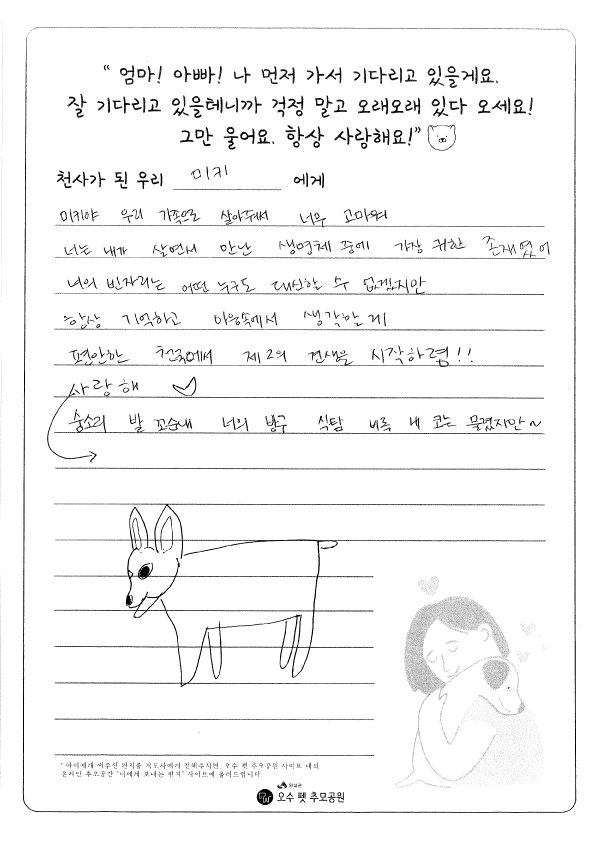 “ 엄마! 아빠! 나 먼저 가서 기다리고 있을게요.
잘 기다리고 있을테니까 걱정 말고 오래오래 있다 오세요!
그만 울어요. 항상 사랑해요!”
천사가 된 우리 미키 에게
미키야 우리 가족으로 살아줘서 너무 고마워
너는 내가 살면서 만난 생명체 중에 가장 귀한 존재였어
너의 빈자리는 어떤 누구도 대신할 수 없겠지만
항상 기억하고 마음속에서 생각할게
편안한 천국에서 제2의 견생을 시작하렴!!
사랑해
숨소리 발 꼬순내 너의 방구 식탐 비록 내 코는 물렸지만~
* 아이에게 써주신 편지를 지도사에게 전해주시면, 오수 펫 추모공원 사이트 내의
온라인 추모공간 "너에게 보내는 편지" 사이트에 올려드립니다.
오수 펫 추모공원